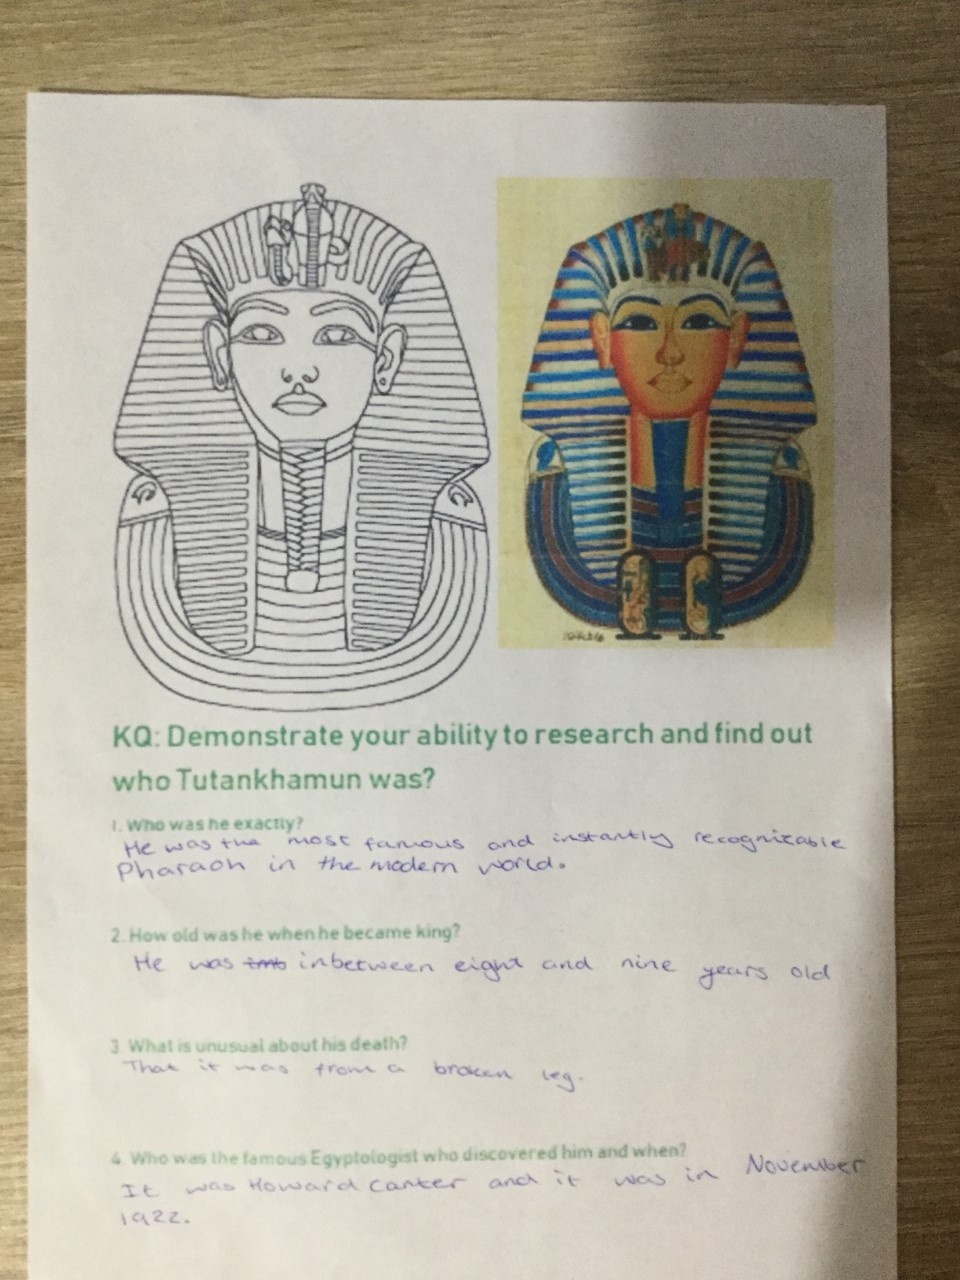 KQ: Demonstrate your ability to research and find out
who Tutankhamun was?
1. Who was he exactly?
He was the most famous and instantly recognizable
Pharaoh in the modern world.
2. How old was he when he became king?
He was inbetween eight and nine years old
3. What is unusual about his death?
That it was from a broken leg.
4. Who was the famous Egyptologist who discovered him and when?
It was Howard Carter and it was in November
1922.